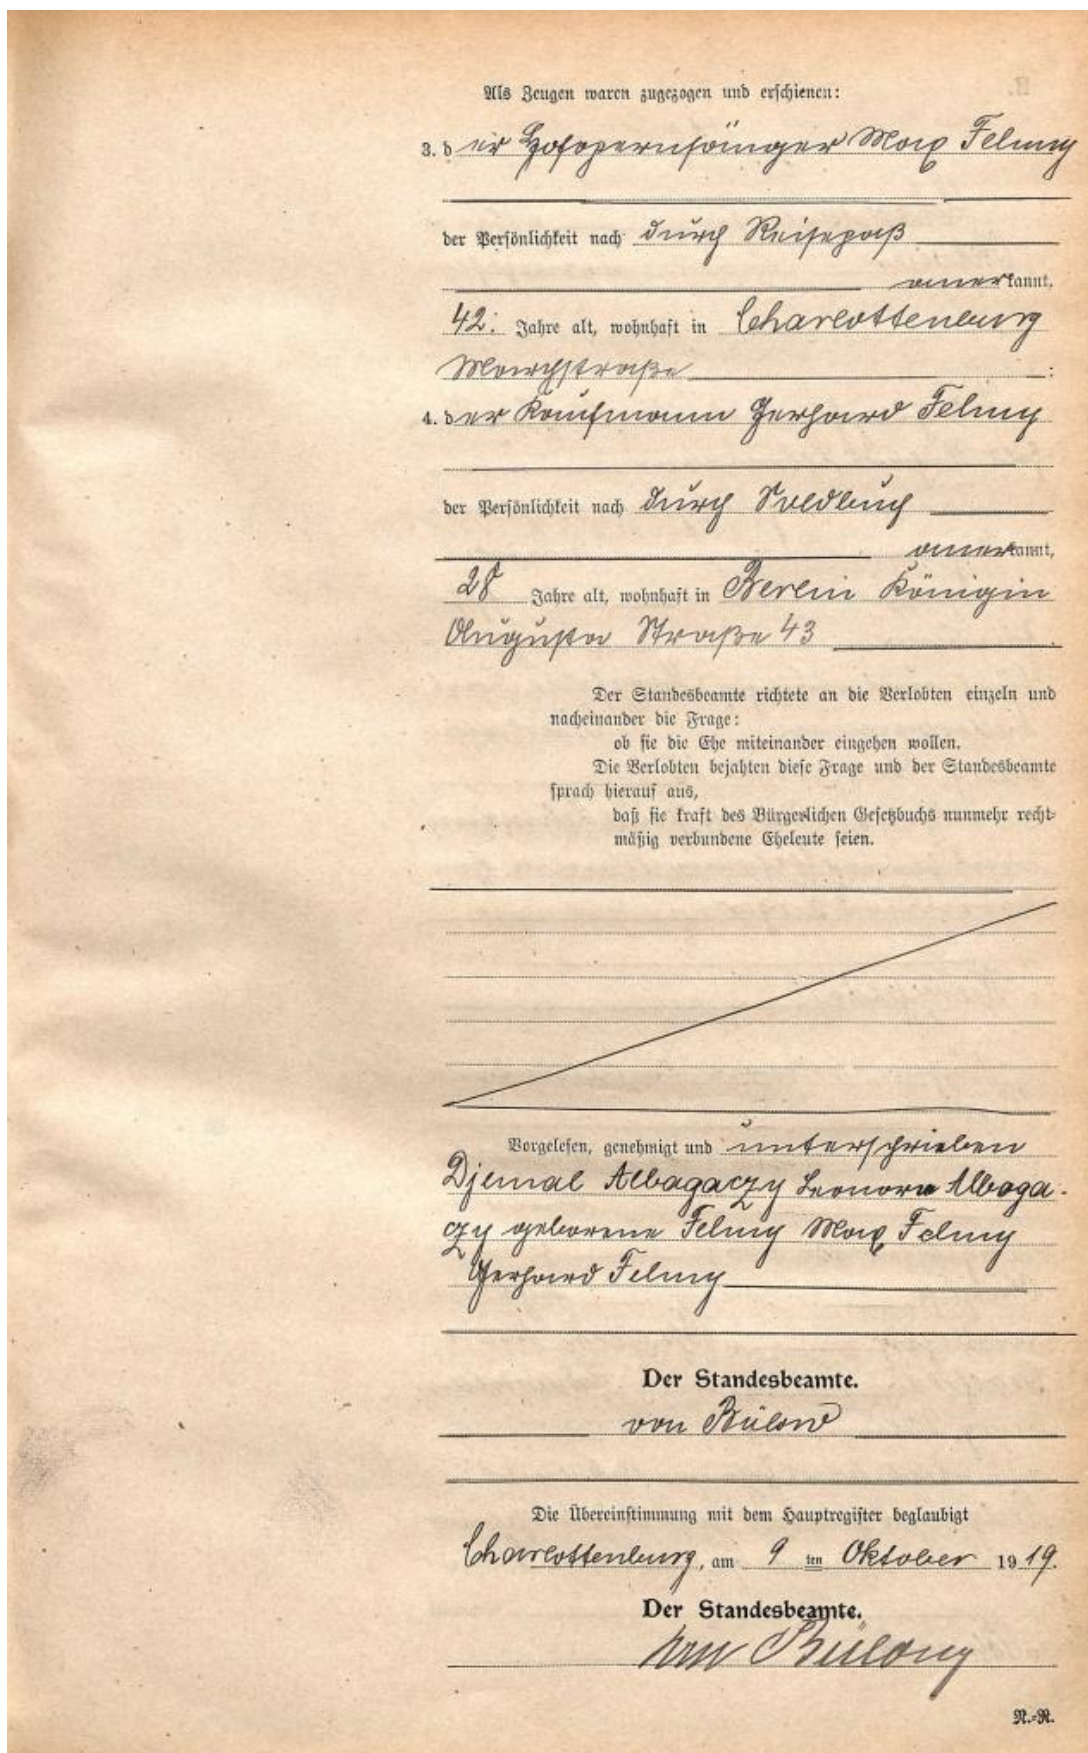 Als Zeugen waren zugezogen und erschienen:
3. der Hofopernsänger Max Felmy
der Persönlichkeit nach durch Reisepaß
anerkannt,
42. Jahre alt, wohnhaft in Charlottenburg
Marchstraße ;
4. der Kaufmann Gerhard Felmy
der Persönlichkeit nach durch Soldbuch
anerkannt,
28 Jahre alt, wohnhaft in Berlin Königin
Augusta Straße 43 .
Der Standesbeamte richtete an die Verlobten einzeln und
nacheinander die Frage:
ob sie die Ehe miteinander eingehen wollen.
Die Verlobten bejahten diese Frage und der Standesbeamte
sprach hierauf aus,
daß sie kraft des Bürgerlichen Gesetzbuchs nunmehr recht-
mäßig verbundene Eheleute seien.
Vorgelesen, genehmigt und unterschrieben
Djemal Albagaczy Leonore Albaga-
czy geborene Felmy Max Felmy
Gerhard Felmy
Der Standesbeamte.
von Bülow
Die Übereinstimmung mit dem Hauptregister beglaubigt
Charlottenburg, am 9 ten Oktober 1919.
Der Standesbeamte.
von Bülow
N.-R.